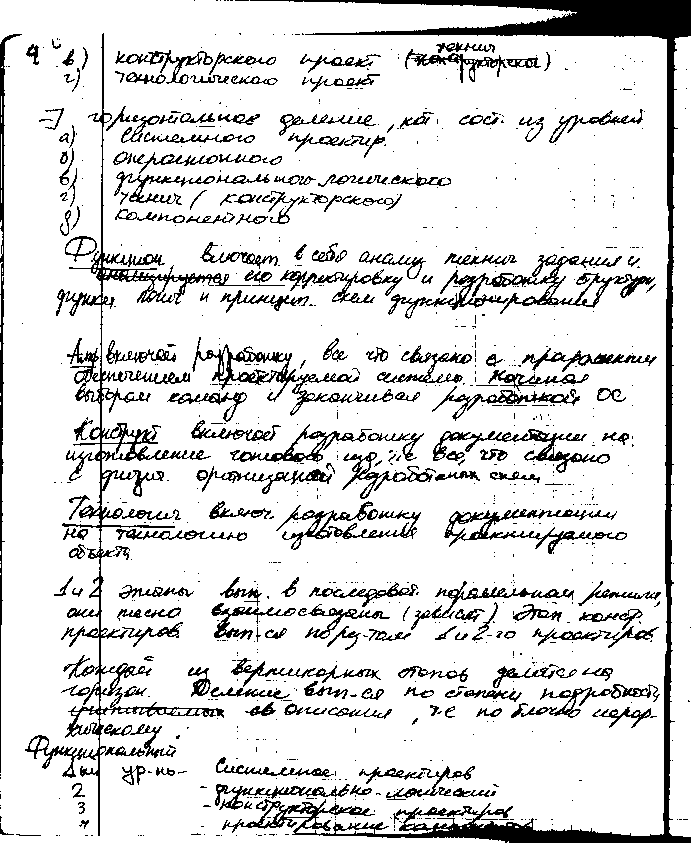 9
в) конструкторского проект (технич конструкторского)
г) технологического проект
=] горизонтальное деление, кот. сост. из уровней
а) системного проектир.
б) операционного
в) функционального логического
г) технич (конструкторского)
д) компонентного
Функцион включает в себя анализ технич задания и
анализируется его корректировку и разработку структуры,
функц логич и принцип. схем функционирования
включай разработку, все что связано с програмным
обеспечением проектируемой системы начиная
выбором команд и заканчивая разработкой ОС
Конструкт включай разработку документации на
изготовление готового изд, т.е все, что связано
с физич организацией разработаных схем
Технологич включ разработку документации
на технологию изготовления проектируемого
объекта
1 и 2 этапы вып. в последоват паралельном режиме,
они тесно взаимосвязаны (зависят). Этап констр.
проектиров вып-ся по рез-там 1 и 2-го проектиров.
Каждый из вертикарных этапов делится на
горизон. Деление вып-ся по степени подробности
учитываемых в описания, т.е по блочно иерар-
хическому.
Функциональный
1 ый ур-нь - Системное проектиров
2 - функционально-логический
3 - конструкторское проектиров
4 - проектирование